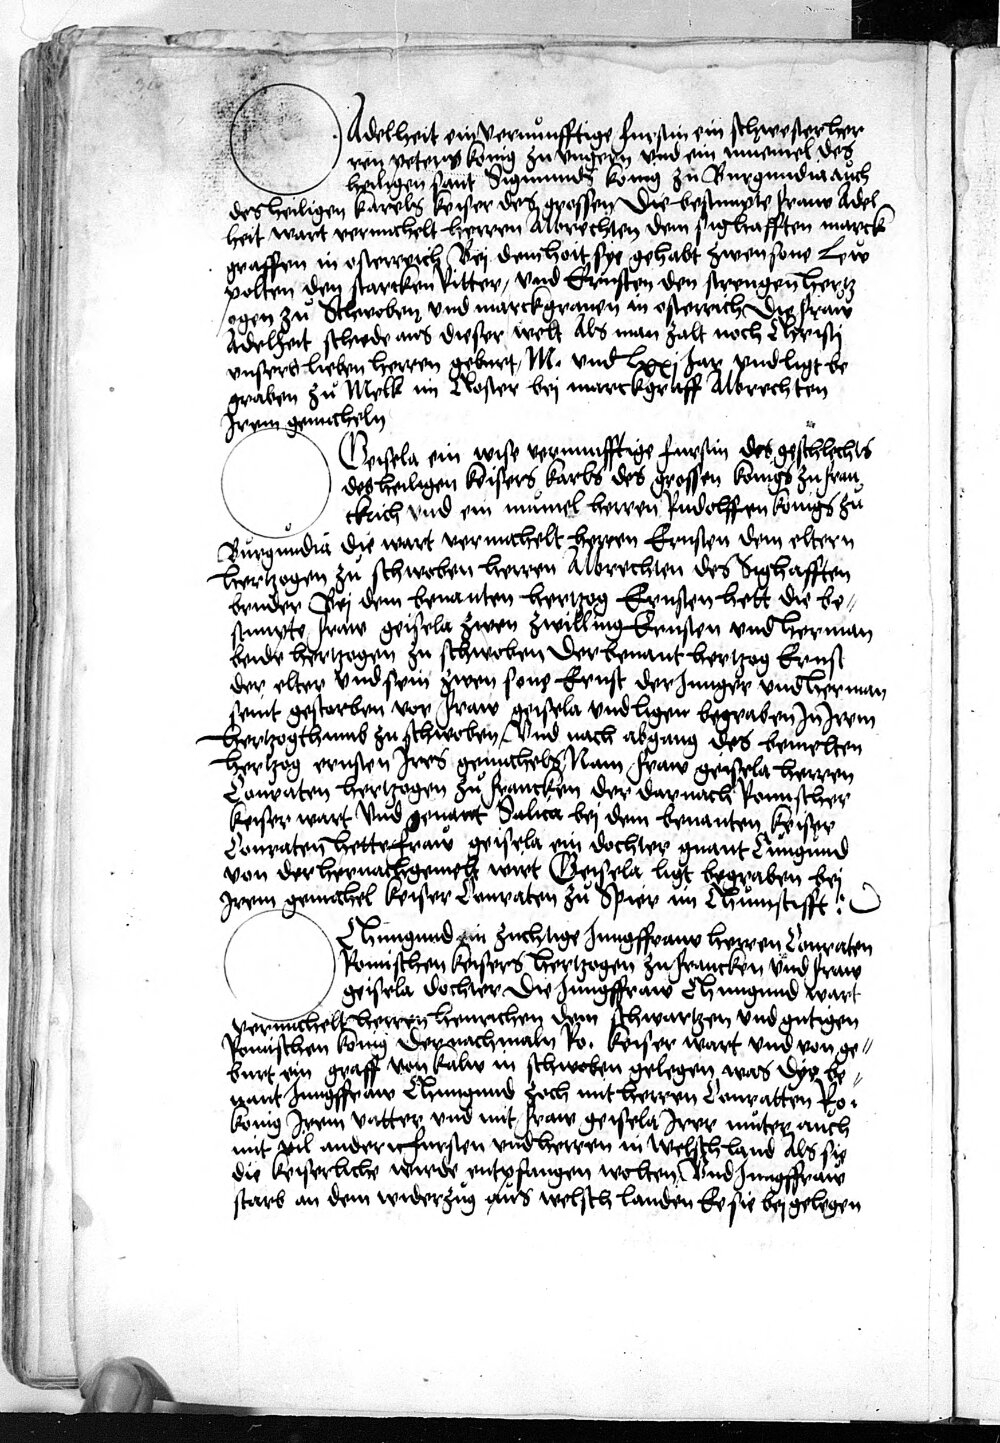 Adelheit ein vernunfftige furstin ein schwester her
ren peters konig zu ungern und ein muemel des
heiligen sant Sigmunds konig zu Burgundia auch
des heiligen karels keiser des grossen Die bestimpte fraw Adel
heit wart vermehelt herren Albrechten dem sighafften marck
graffen in osterreich Bei dem hoit sye gehabt zwen sone Leu
polten den starcken Ritter, und Ernsten den strengen hertz
ogen zu Schwoben und marckgraven in osterrich Die fraw
Adelheit schiede aus dieser welt Als man zalt noch Christi
unsers lieben herren geburt, M. und lxxj Jar und ligt be
graben zu Melk im Closter bei marckgraff Albrechten
Irem gemaheln
Geisela ein wise vernunfftige furstin des geschlechts
des heiligen keisers karls des grossen konigs zu fran
ckrich und ein mumel herren Rudolffen konigs zu
Burgundia die wart vermehelt herren Ernsten dem eltern
hertzogen zu schwoben herren Albrechten des Sighafften
bruder Bei dem benanten hertzog Ernsten hett die be//
stimpte fraw geisela zwen zwilling Ernsten und herman
beide hertzogen zu schwoben Der benant hertzog Ernst
der elter und sein zwen sone Ernst der Junger und herman
seint gestorben vor fraw geisela und ligen begraben In Irem
hertzogthumb zu schwoben, Und nach abgang des bemelten
hertzog ernsten Ires gemahels Nam fraw geisela herren
Conraten hertzogen zu francken der darnach Romischer
keiser wart Und genant Salica bei dem benanten keiser
Conraten hette fraw geisela ein dochter gnant Cungund
von der hernach gemelt wirt Geisela ligt begraben bei
Irem gemahel keiser Conraten zu Spier im Thumstifft :
Chungund ein zuchtige Jungffraw herren Conraten
Romischen keisers hertzogen zu francken und fraw
geisela dochter Die Jungffraw Chungund wart
vermehelt herren henrichen dem schwartzen und gutigen
Romischen konig Der nachmaln Ro. keiser wart und von ge//
burt ein graff von kalw in schwoben gelegen was Dye be//
nant Jungffraw Chungund zoch mit herren Conratten Ro.
konig Irem vatter und mit fraw geisela Irer muter auch
mit vil andern fursten und herren in welsch land Als sie
die keiserliche wirde entpfangen wolten, Und Jungffraw
starb an dem widerzug aus welsch landen Ee sie bei gelegen